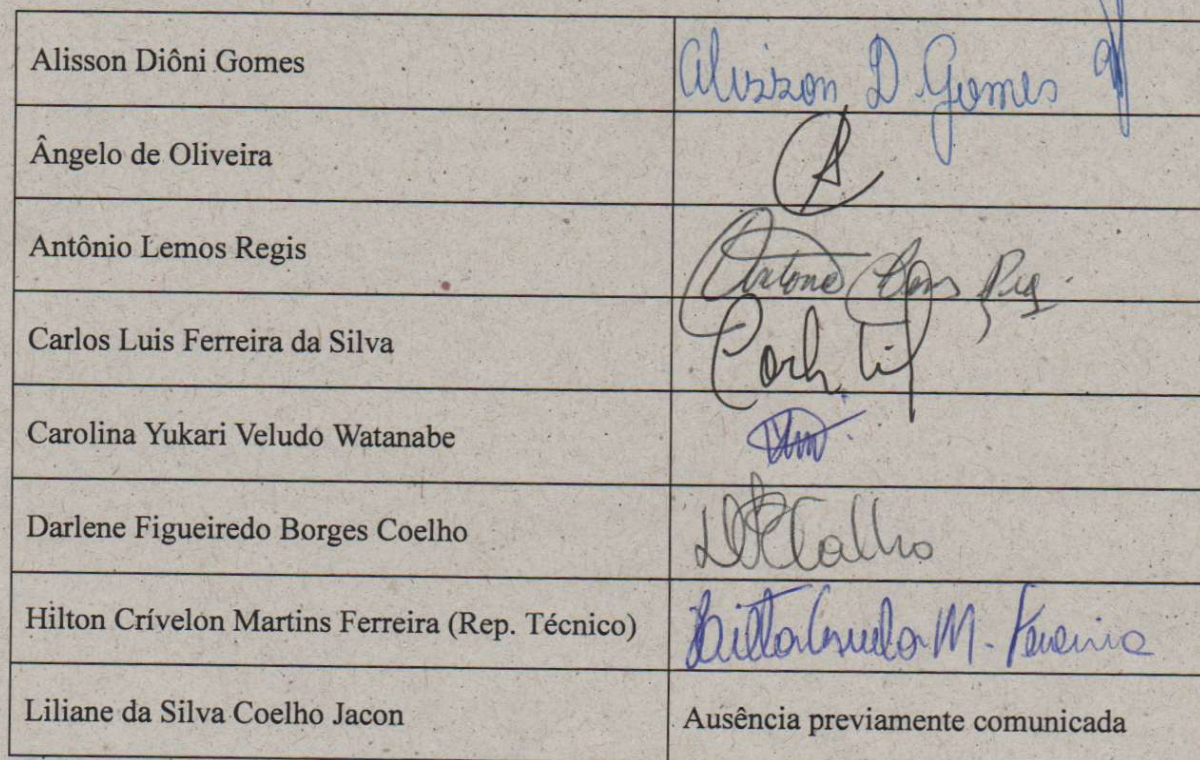 Alisson Diôni Gomes
Alisson D Gomes
Ângelo de Oliveira
Antônio Lemos Regis
Carlos Luis Ferreira da Silva
Carolina Yukari Veludo Watanabe
Darlene Figueiredo Borges Coelho
Hilton Crívelon Martins Ferreira (Rep. Técnico)
M. Ferreira
Liliane da Silva Coelho Jacon
Ausência previamente comunicada